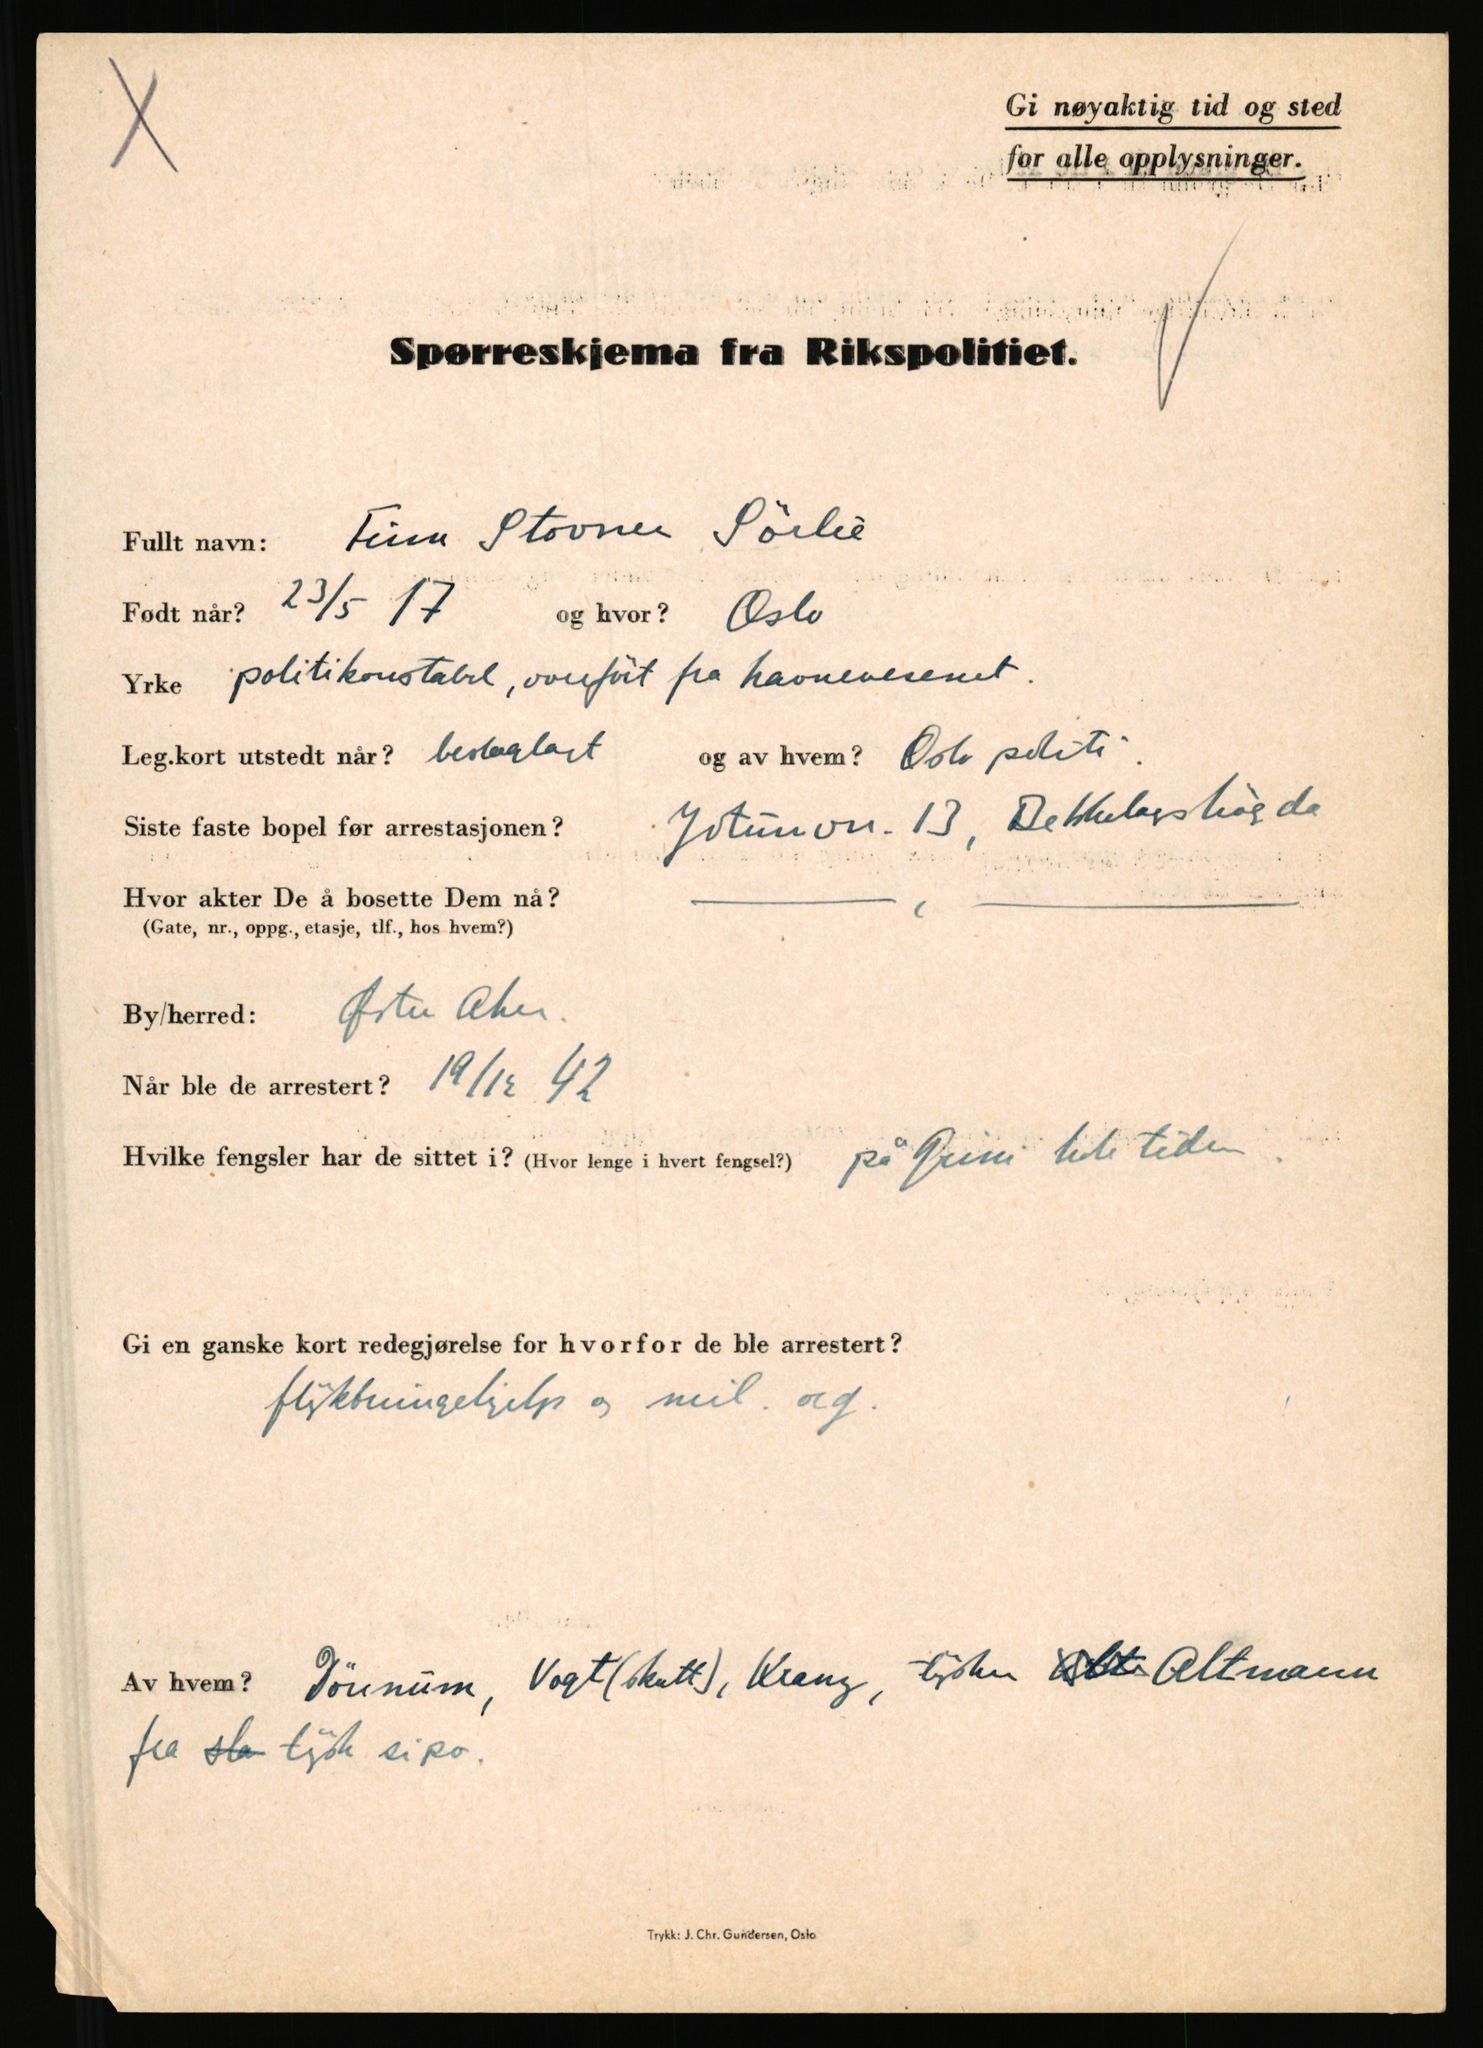 Gi nøyaktig tid og sted
for alle opplysninger.
Spørreskjema fra Rikspolitiet.
Fullt navn: Finn Stovner Sörlie
Født når? 23/5 17 og hvor? Oslo
Yrke politikonstabel, overfört fra havnevesenet.
Leg.kort utstedt når? beslaglagt og av hvem? Oslo politi.
Siste faste bopel før arrestasjonen? Jotunvn. 13, Bekkelagshögda
Hvor akter De å bosette Dem nå? ———, ———
(Gate, nr., oppg., etasje, tlf., hos hvem?)
By/herred: Øster Aker.
Når ble de arrestert? 19/12 42
Hvilke fengsler har de sittet i? (Hvor lenge i hvert fengsel?) på Grini hele tiden.
Gi en ganske kort redegjørelse for hvorfor de ble arrestert?
flyktningehjelp og mil. org.
Av hvem? Dönnum, Vogt (skutt), Kranz, tysker Altmann
fra tysk sipo.
Trykk: J. Chr. Gundersen, Oslo